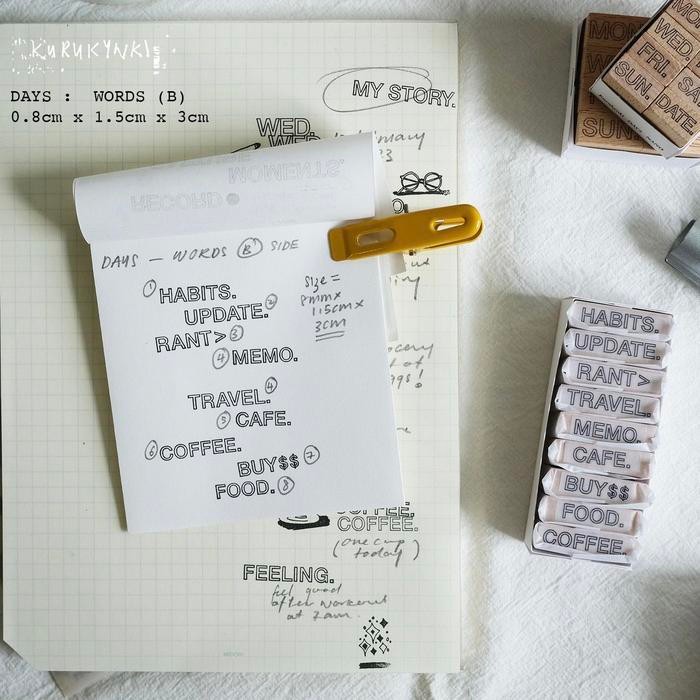 KURUKYNKI
DAYS :  WORDS (B)
0.8cm x 1.5cm x 3cm
MY STORY.
WED.
WED.
MOMENTS.
RECORD
DAYS — WORDS (B) SIDE
① HABITS.
UPDATE. ②
RANT> ③
④ MEMO.
TRAVEL. ④
⑤ CAFE.
⑥ COFFEE.
BUY$$ ⑦
FOOD. ⑧
size =
8mm x
1.15cm x
3cm
COFFEE.
COFFEE.
(one cup
today)
FEELING.
feel good
after workout
at 7am.
MON
WED
FRI.
SAT
SUN. DATE
SUN
HABITS.
UPDATE.
RANT>
TRAVEL.
MEMO.
CAFE.
BUY$$
FOOD.
COFFEE.